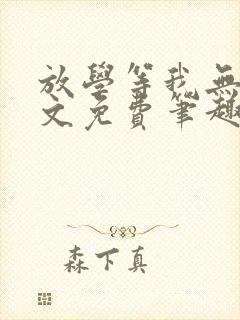 放學等我無
文免費筆趣
森下真